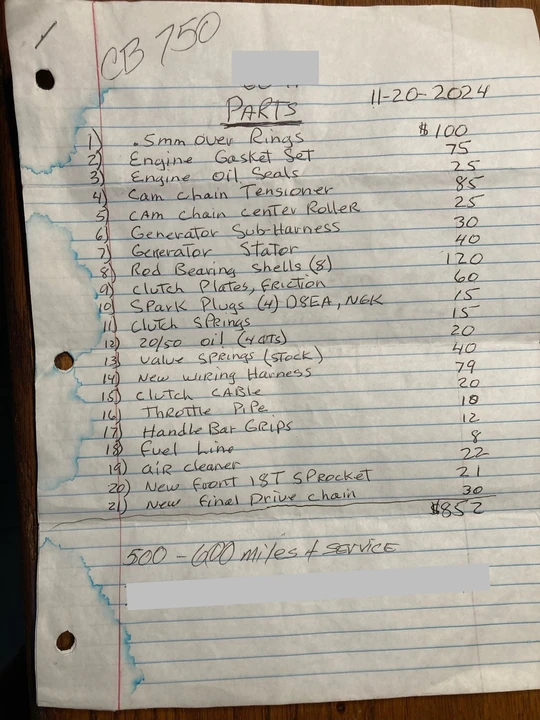 CB 750
PARTS 11-20-2024
1) .5mm over Rings $100
2) Engine Gasket Set 75
3) Engine Oil Seals 25
4) Cam Chain Tensioner 85
5) CAM Chain Center Roller 25
6) Generator Sub-Harness 30
7) Generator Stator 40
8) Rod Bearing Shells (8) 120
9) Clutch Plates, Friction 60
10) Spark Plugs (4) D8EA, NGK 15
11) Clutch Springs 15
12) 20/50 oil (4 QTS) 20
13) Valve Springs (stock) 40
14) New Wiring Harness 79
15) Clutch CABle 20
16) Throttle Pipe 10
17) HandleBar Grips 12
18) Fuel Line 8
19) air cleaner 22
20) New Front 18T Sprocket 21
21) New Final Drive Chain 30
$852
500 - 600 miles + SERVICE